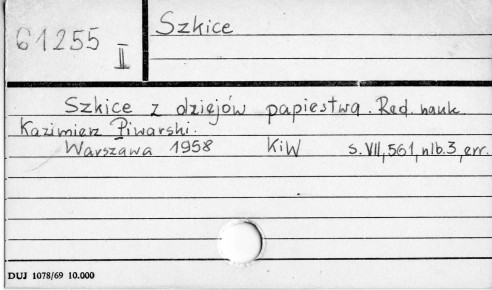 61255
II
Szkice
Szkice z dziejów papiestwa. Red. nauk.
Kazimierz Piwarski.
Warszawa 1958 KiW s. VII, 561, nlb. 3, err.
DUJ 1078/69 10.000